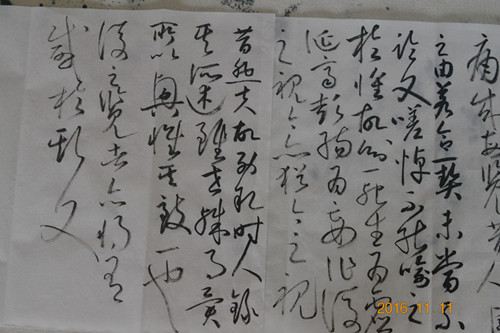 痛哉每覽昔人
之由若合一契未嘗不
臨文嗟悼不能喻之
於懷故知一死生為虛
誕齊彭殤為妄作後
之視今亦猶今之視
昔悲夫故列敘時人錄
其所述雖世殊事異
所以興懷其致一也
後之覽者亦將有
感於斯文
2016 11 11